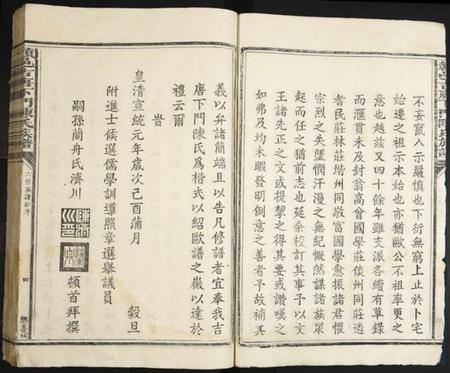 不妄竄入示嚴慎也下衍無窮上止於卜宅
始遷之祖示本始也亦猶歐公不祖率更之
意也越茲又四十餘年雖支派各續有草錄
而滙貫未及封翁高會國學莊倓州同莊遴
耆民莊林莊塏州同敬富國學愈振諸君懼
宗烈之失墜憫汗漫之無紀慨然謀諸族眾
起而任之猶前志也延余校訂其事予以文
王諸先正之文或提挈之得其要或讚嘆之
極其摯均未暇發明倒意之善者予故補其
義以弁諸簡端且以告凡修譜者宜奉我吉
唐下門陳氏為楷式以紹歐譜之徽以達於
禮云爾
旹
皇清宣統元年歲次己酉蒲月 穀旦
附進士候選儒學訓導照章選舉議員
嗣孫蘭舟氏濟川 頓首拜撰
六修族譜新序
四